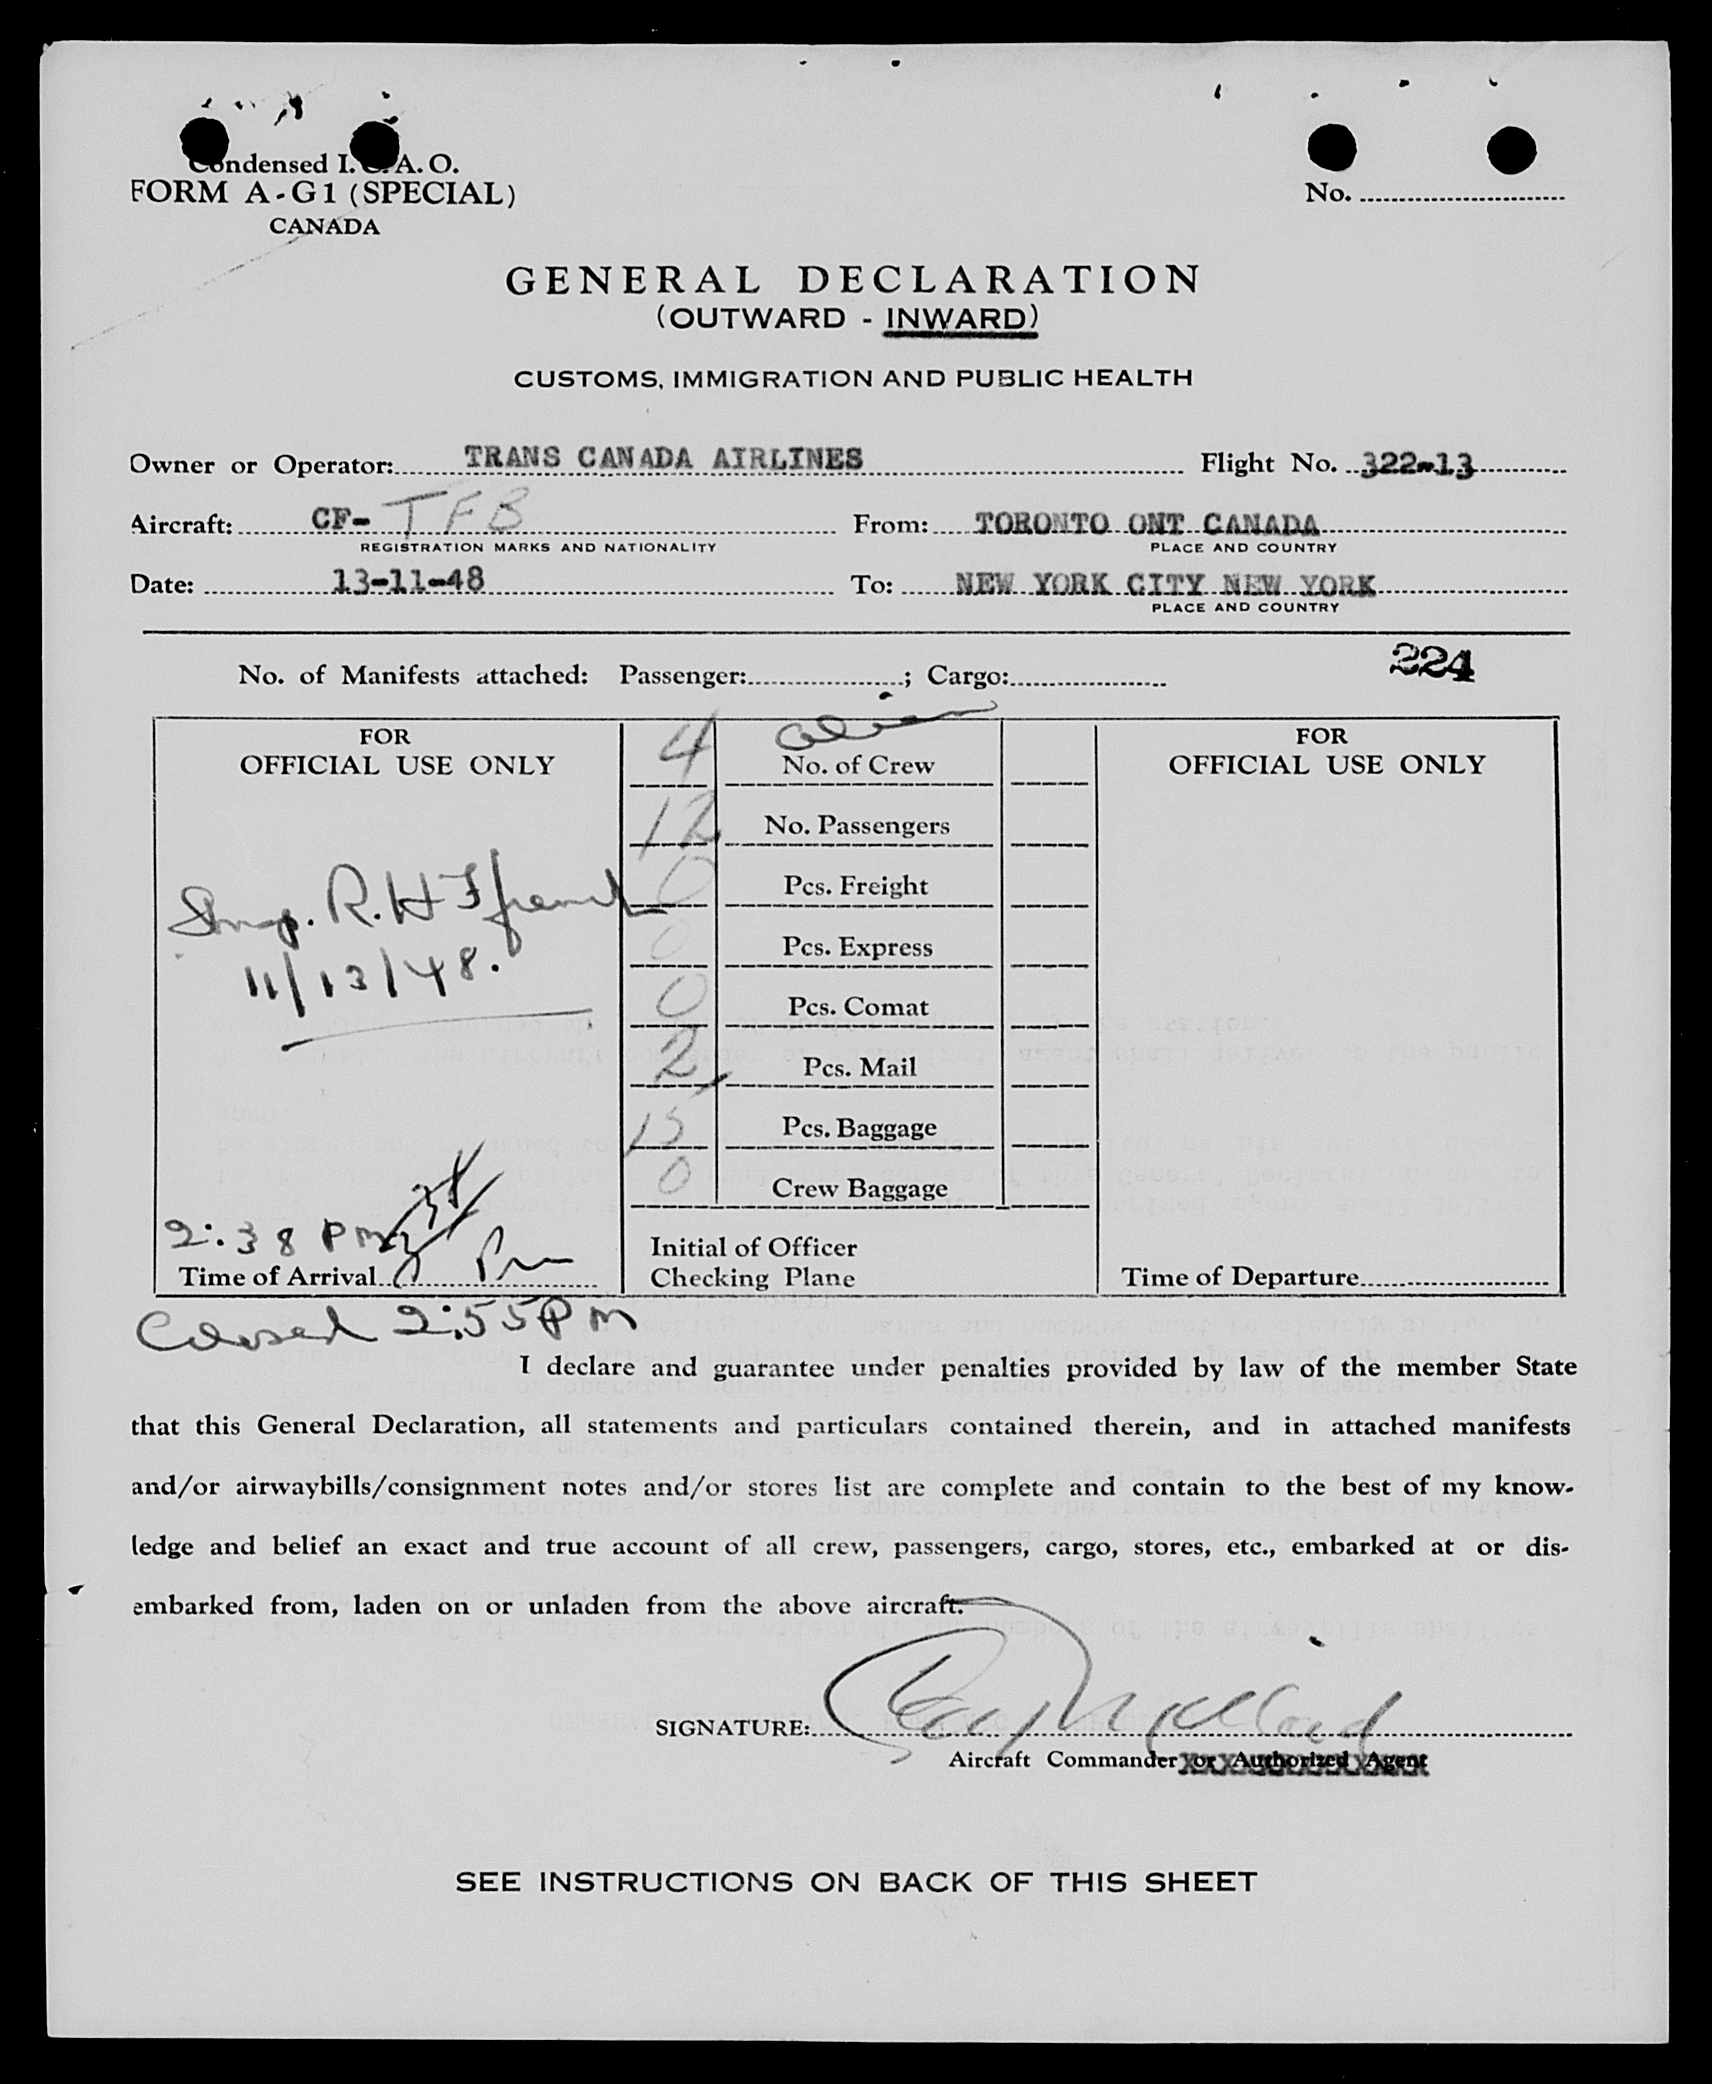 Condensed I. C. A. O.
FORM A-G1 (SPECIAL)
CANADA
No.
GENERAL DECLARATION
(OUTWARD - INWARD)
CUSTOMS, IMMIGRATION AND PUBLIC HEALTH
Owner or Operator: TRANS CANADA AIRLINES Flight No. 322-13
Aircraft: CF- TFB From: TORONTO ONT CANADA
REGISTRATION MARKS AND NATIONALITY PLACE AND COUNTRY
Date: 13-11-48 To: NEW YORK CITY NEW YORK
PLACE AND COUNTRY
224
No. of Manifests attached: Passenger: ; Cargo:
FOR
OFFICIAL USE ONLY
Insp. R. H
11/13/48.
2:38 PM
Time of Arrival
alien
4 No. of Crew
12 No. Passengers
0 Pcs. Freight
0 Pcs. Express
0 Pcs. Comat
2 Pcs. Mail
15 Pcs. Baggage
0 Crew Baggage
Initial of Officer
Checking Plane
FOR
OFFICIAL USE ONLY
Time of Departure
Closed 2:55 PM
I declare and guarantee under penalties provided by law of the member State
that this General Declaration, all statements and particulars contained therein, and in attached manifests
and/or airwaybills/consignment notes and/or stores list are complete and contain to the best of my know-
ledge and belief an exact and true account of all crew, passengers, cargo, stores, etc., embarked at or dis-
embarked from, laden on or unladen from the above aircraft.
SIGNATURE:
Aircraft Commander or Authorized Agent
SEE INSTRUCTIONS ON BACK OF THIS SHEET